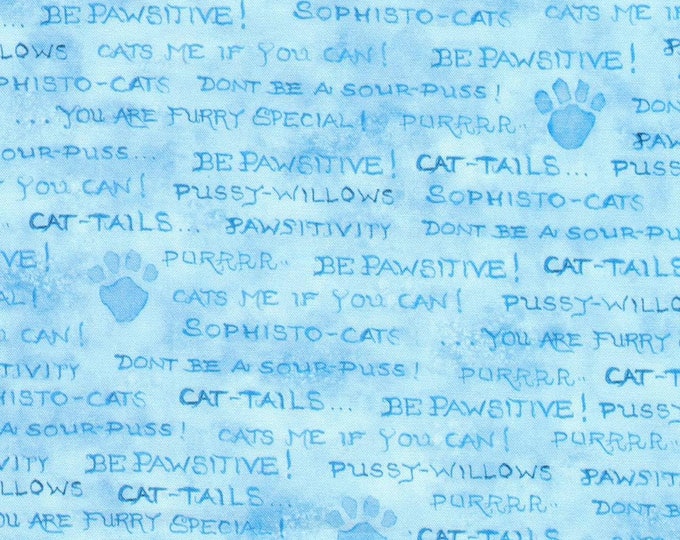 ... SOPHISTO-CATS CATS ME IF
WILLOWS CATS ME IF YOU CAN! BE PAWSITIVE!
SOPHISTO-CATS DONT BE A SOUR-PUSS!
...YOU ARE FURRY SPECIAL! PURRRR.. DON
SOUR-PUSS... BE PAWSITIVE! CAT-TAILS... PUSS
F YOU CAN! PUSSY-WILLOWS SOPHISTO-CATS
CAT-TAILS... PAWSITIVITY DONT BE A SOUR-PU
VE! PURRRR.. BE PAWSITIVE! CAT-TAILS
AL! CATS ME IF YOU CAN! PUSSY-WILLOW
U CAN! SOPHISTO-CATS ...YOU ARE FURRY
TIVITY DONT BE A SOUR-PUSS! PURRRR.. CAT-T
HISTO-CATS CAT-TAILS... BE PAWSITIVE! PUSSY
T BE A SOUR-PUSS! CATS ME IF YOU CAN! PURRRR..
IVITY BE PAWSITIVE! PUSSY-WILLOWS PAWSITIV
LLOWS CAT-TAILS... PURRRR.. DONT BE
OU ARE FURRY SPECIAL! CAT-TAILS